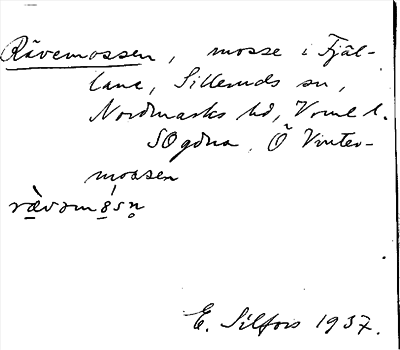 Rävemossen, mosse i Fjäl-
lane, Silleruds sn,
Nordmarks hd, Vrml l.
SO gdna, Ö Vinter-
mossen
rä̀vəm8́sn̥
E. Silfors 1937.